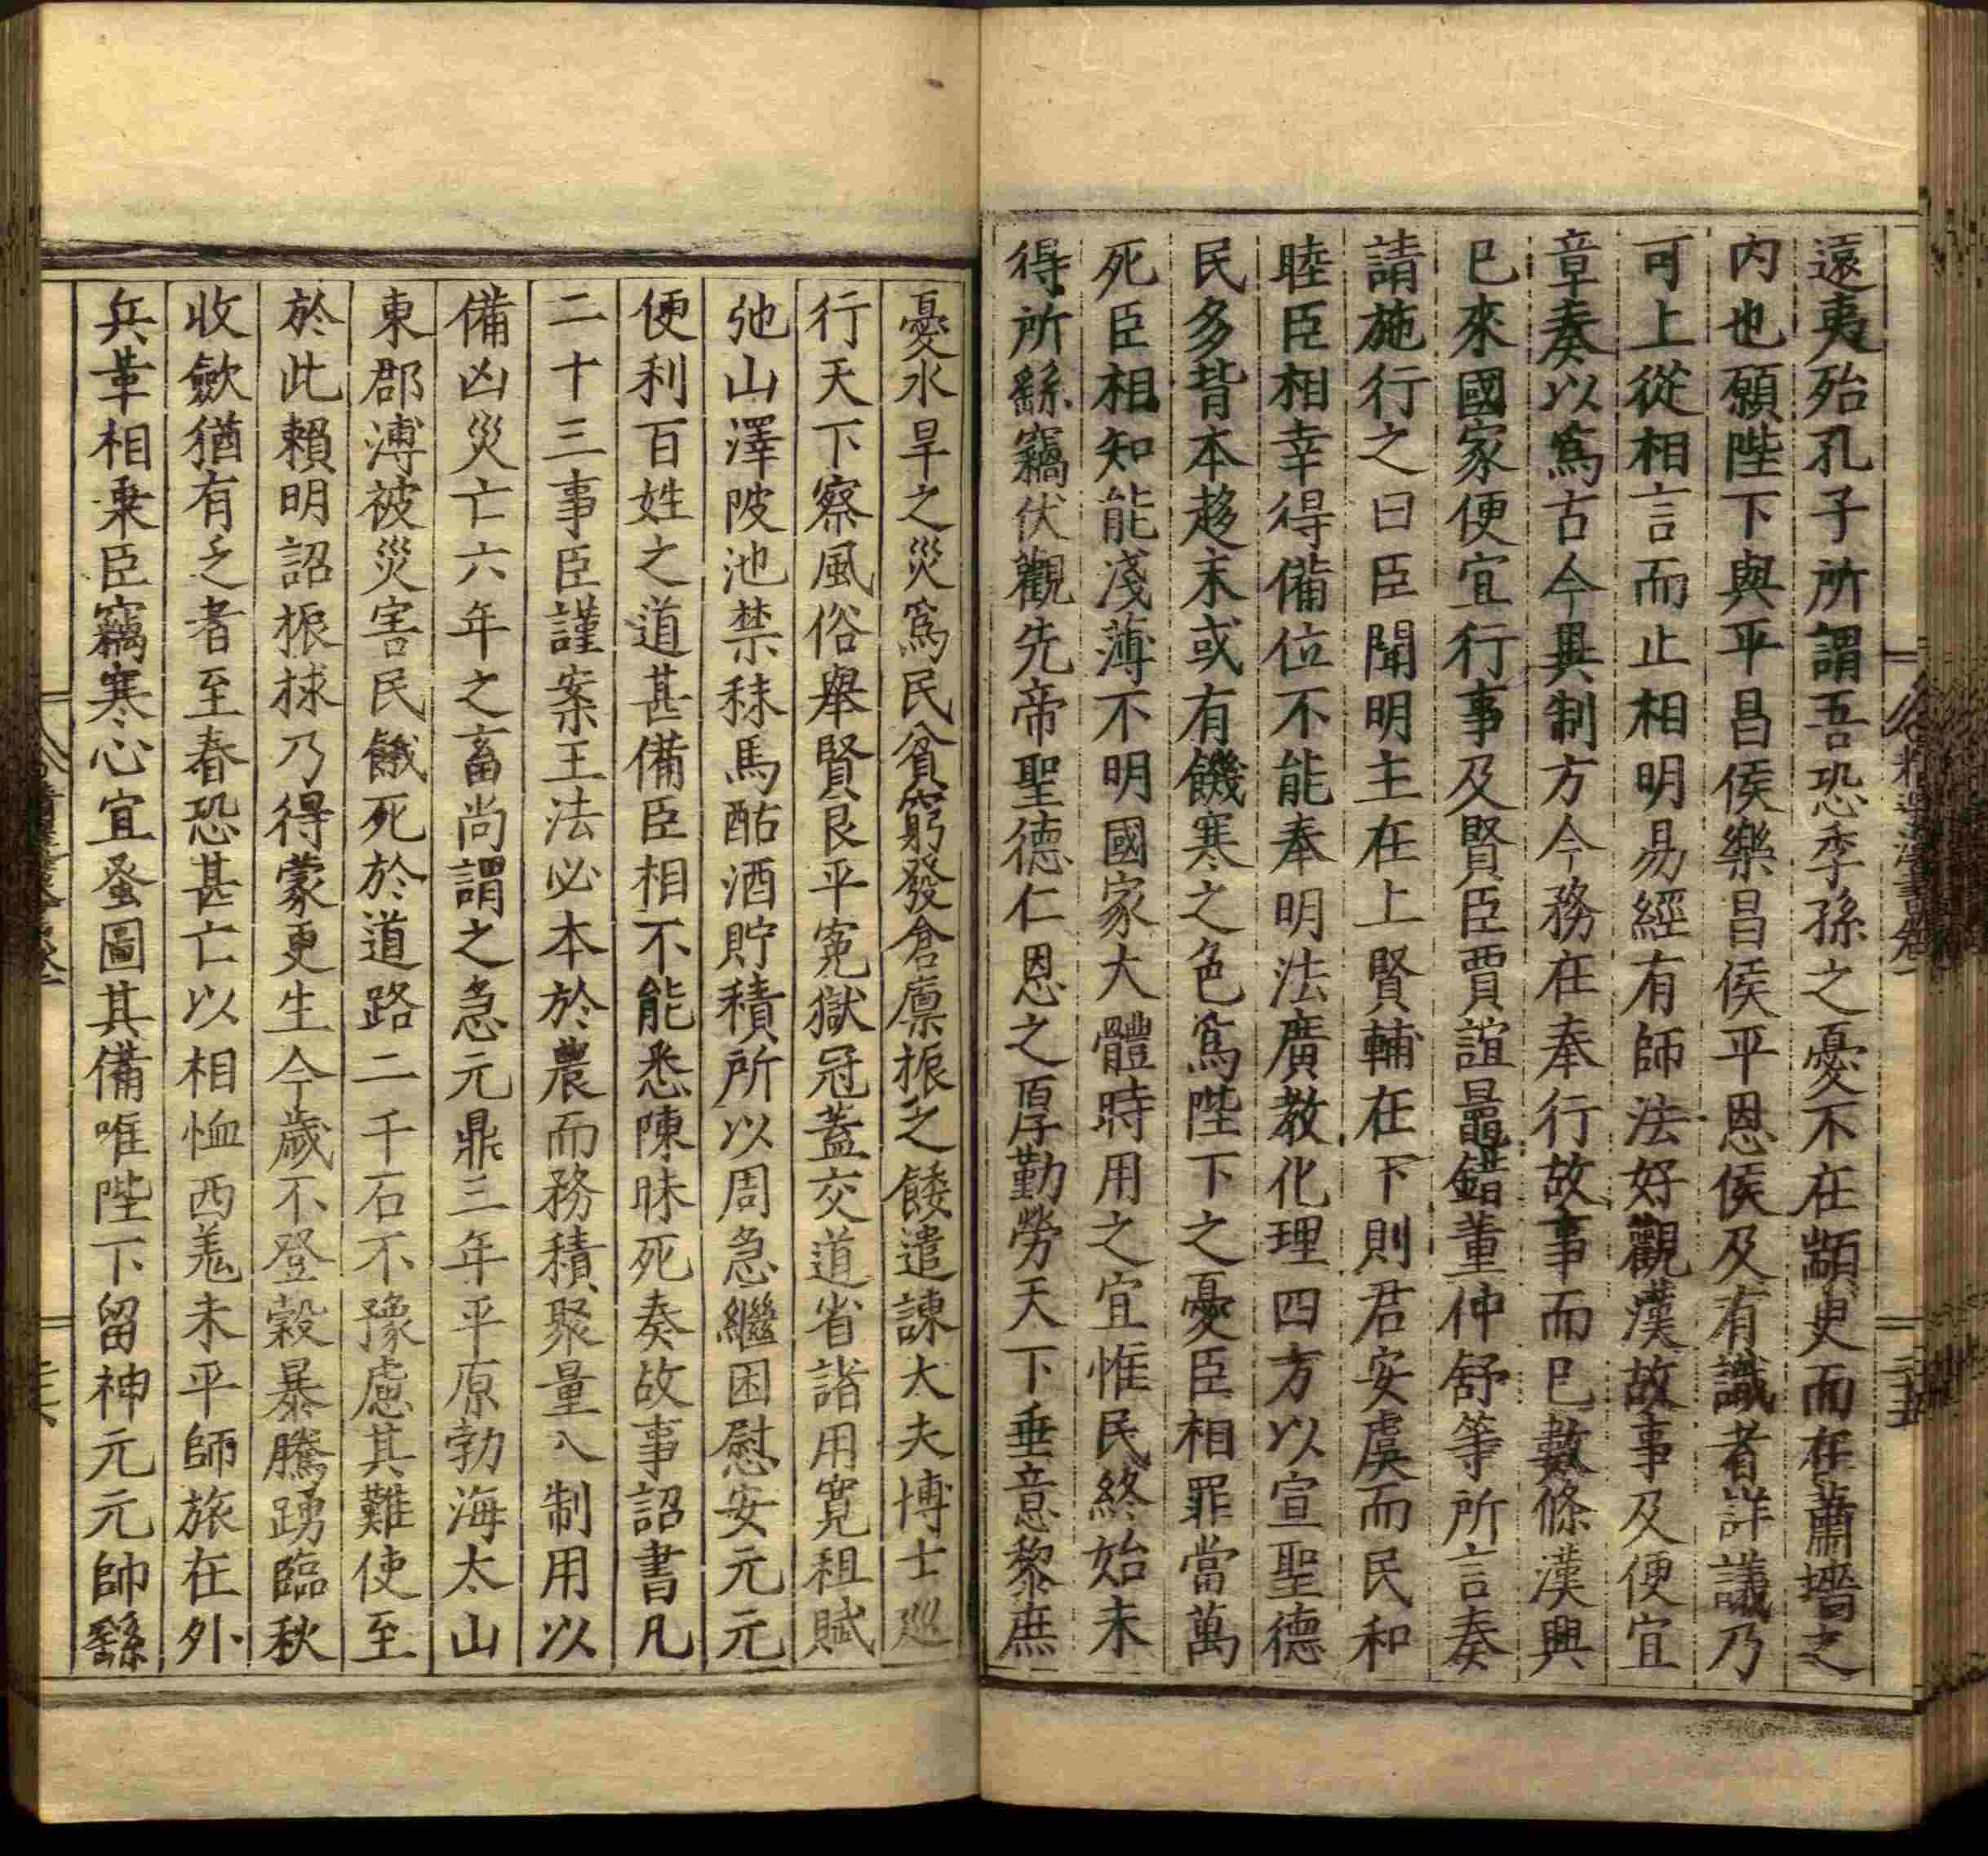 遠夷殆孔子所謂吾恐季孫之憂不在顓臾而在蕭墻之
内也願陛下與平昌侯樂昌侯平恩侯及有識者詳議乃
可上從相言而止相明易經有師法好觀漢故事及便宜
章奏以爲古今異制方今務在奉行故事而已數條漢興
已來國家便宜行事及賢臣賈誼鼂錯董仲舒等所言奏
請施行之曰臣聞明主在上賢輔在下則君安虞而民和
睦臣相幸得備位不能奉明法廣教化理四方以宣聖德
民多背本趍末或有饑寒之色爲陛下之憂臣相罪當萬
死臣相知能淺薄不明國家大體時用之宜惟民終始未
得所繇竊伏觀先帝聖德仁恩之厚勤勞天下垂意黎庶
憂水旱之災爲民貧窮發倉廪振乏餧遣諫大夫博士巡
行天下察風俗舉賢良平寃獄冠蓋交道省諸用寬租賦
弛山澤陂池禁秣馬酤酒貯積所以周急繼困慰安元元
便利百姓之道甚備臣相不能悉陳昧死奏故事詔書凡
二十三事臣謹案王法必本於農而務積聚量入制用以
備凶災亡六年之畜尚謂之急元鼎三年平原勃海太山
東郡溥被災害民餓死於道路二千石不豫慮其難使至
於此賴明詔振捄乃得蒙更生今歲不登穀暴騰踴臨秋
收斂猶有乏者至春恐甚亡以相恤西羌未平師旅在外
兵革相乗臣竊寒心宜蚤圖其備唯陛下留神元元帥繇
二十五